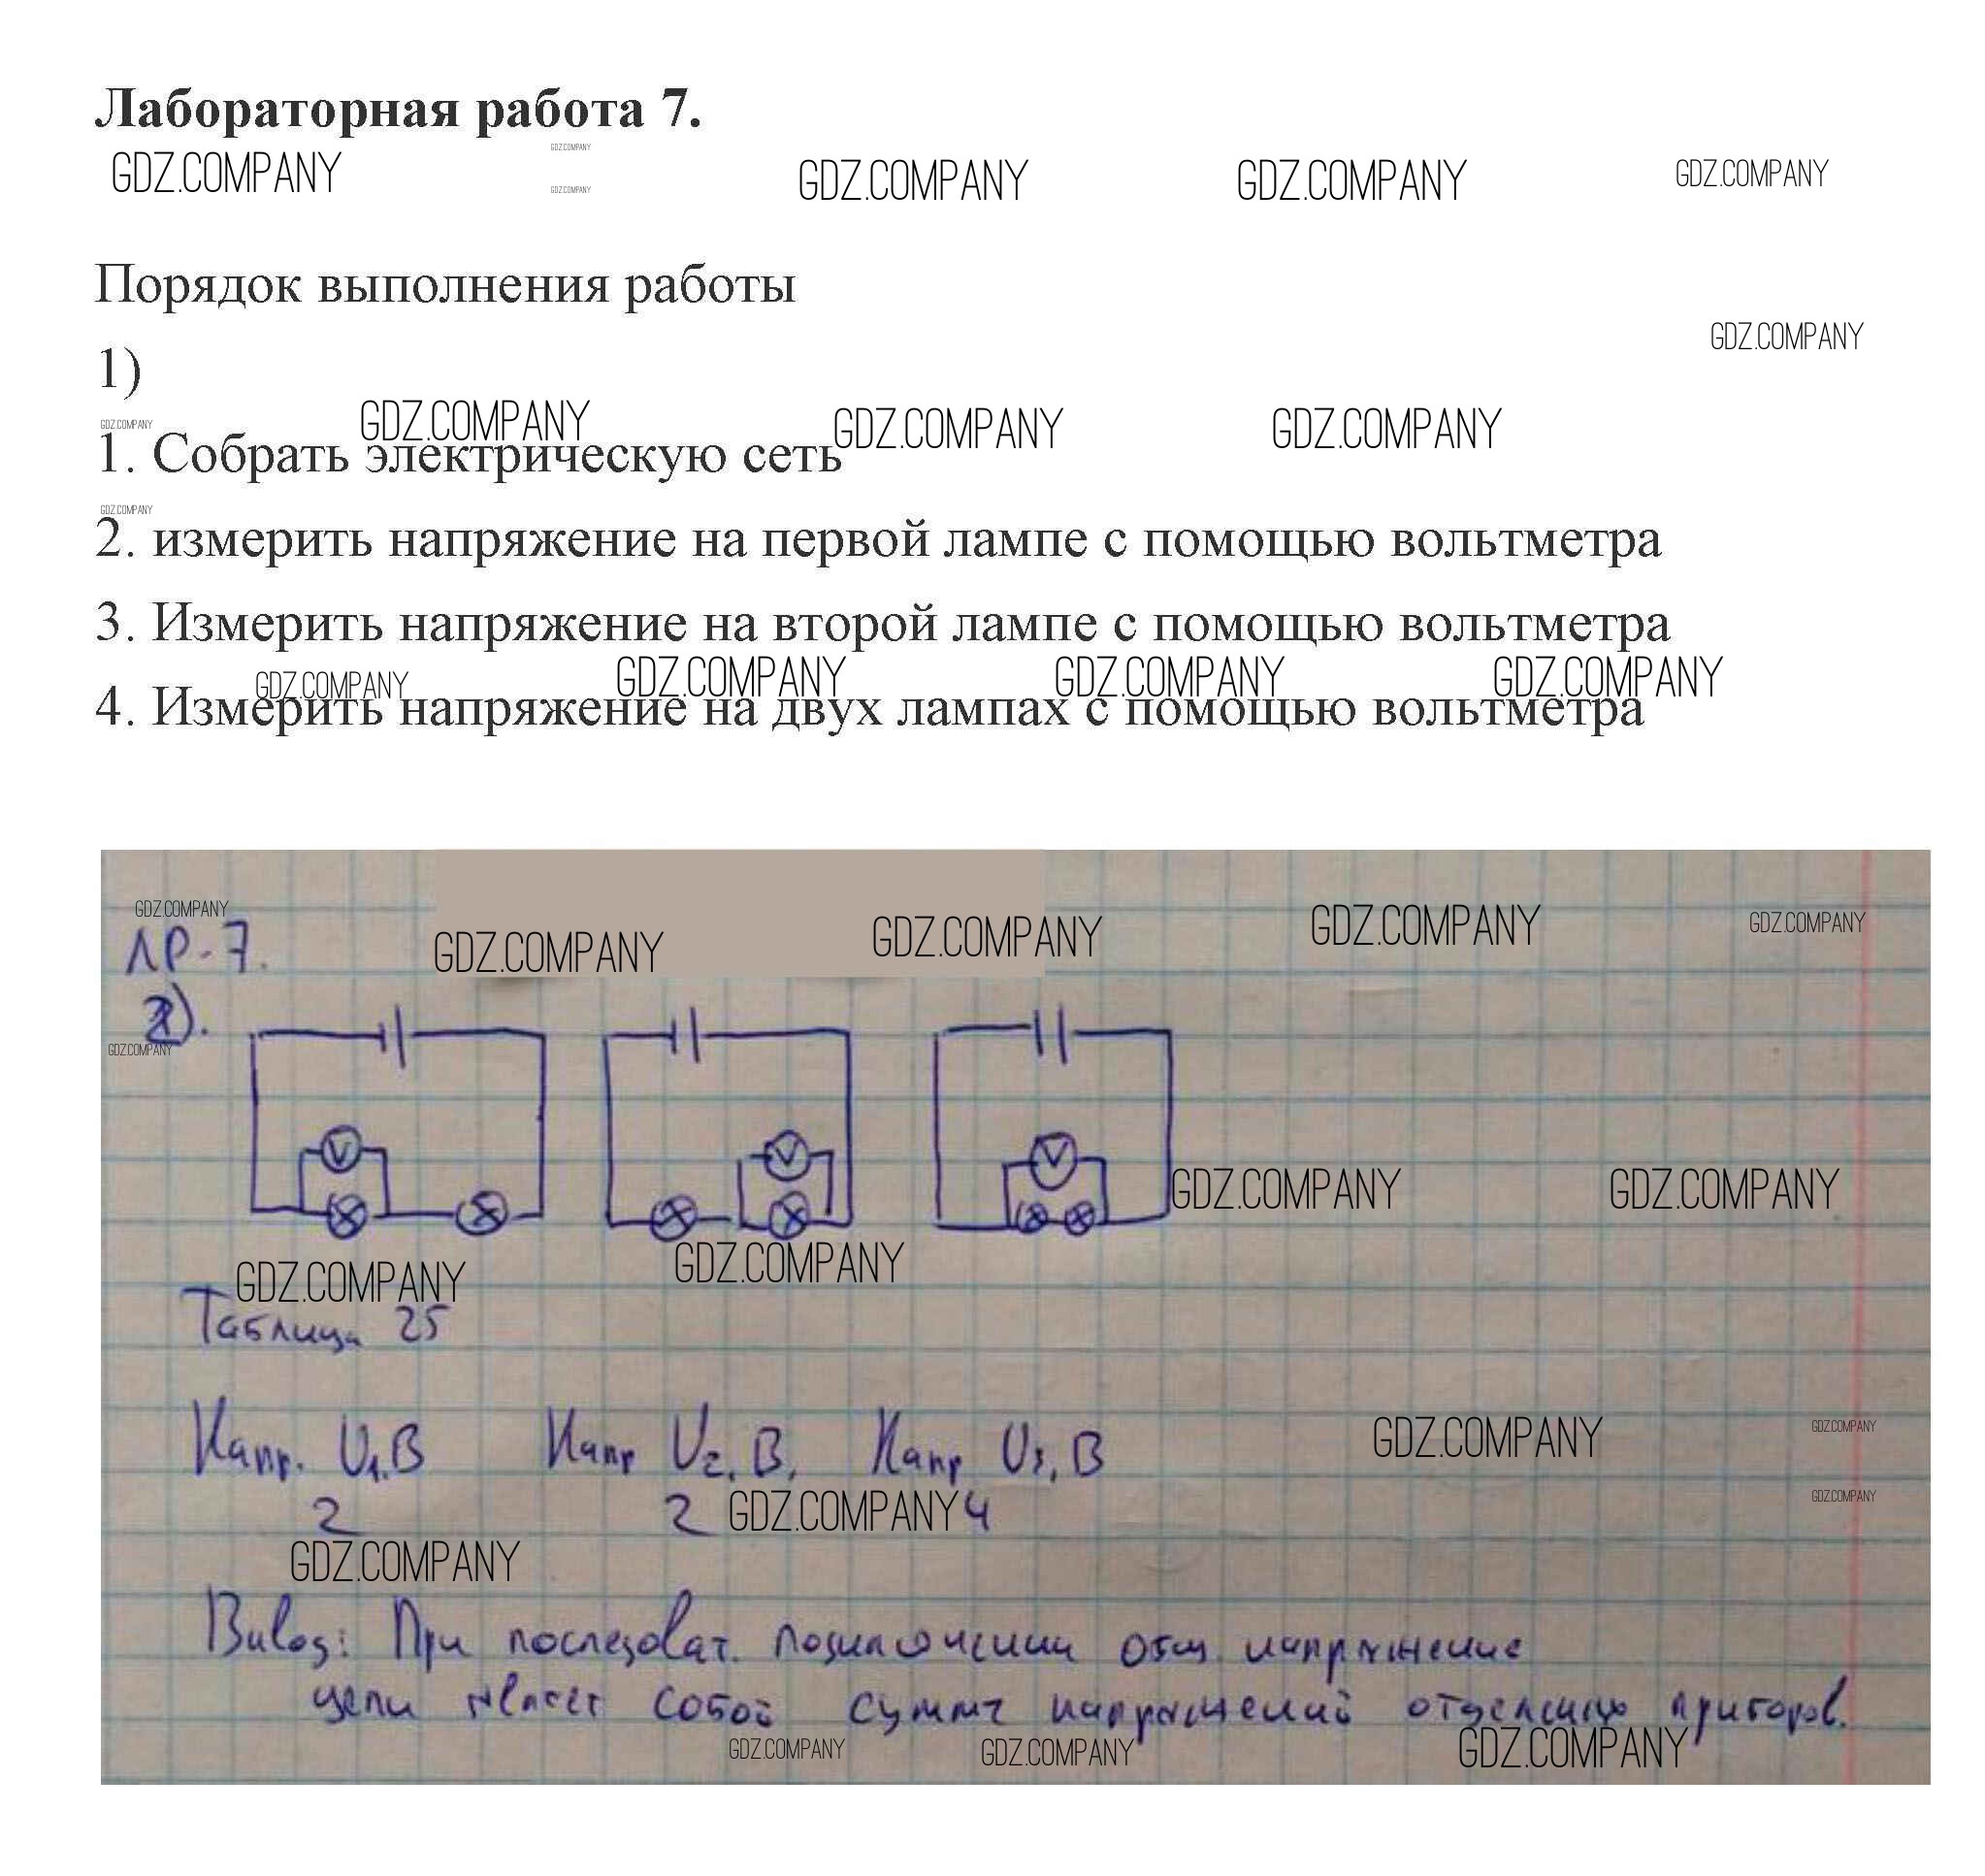 Лабораторная работа 7.
GDZ.COMPANY GDZ.COMPANY GDZ.COMPANY GDZ.COMPANY GDZ.COMPANY
GDZ.COMPANY
Порядок выполнения работы
GDZ.COMPANY
1)
GDZ.COMPANY GDZ.COMPANY GDZ.COMPANY GDZ.COMPANY
1. Собрать электрическую сеть
GDZ.COMPANY
2. измерить напряжение на первой лампе с помощью вольтметра
3. Измерить напряжение на второй лампе с помощью вольтметра
GDZ.COMPANY GDZ.COMPANY GDZ.COMPANY GDZ.COMPANY
4. Измерить напряжение на двух лампах с помощью вольтметра
GDZ.COMPANY GDZ.COMPANY GDZ.COMPANY GDZ.COMPANY GDZ.COMPANY
ЛР-7.
GDZ.COMPANY
V V V
GDZ.COMPANY GDZ.COMPANY
GDZ.COMPANY GDZ.COMPANY
Таблица 25
Напр. U1,В Напр U2,В, Напр U3,В
GDZ.COMPANY GDZ.COMPANY
2 2 GDZ.COMPANY 4
GDZ.COMPANY
GDZ.COMPANY
Вывод: При последоват. подключении общ. напряжение
цепи собой напряжений приборов.
GDZ.COMPANY GDZ.COMPANY GDZ.COMPANY